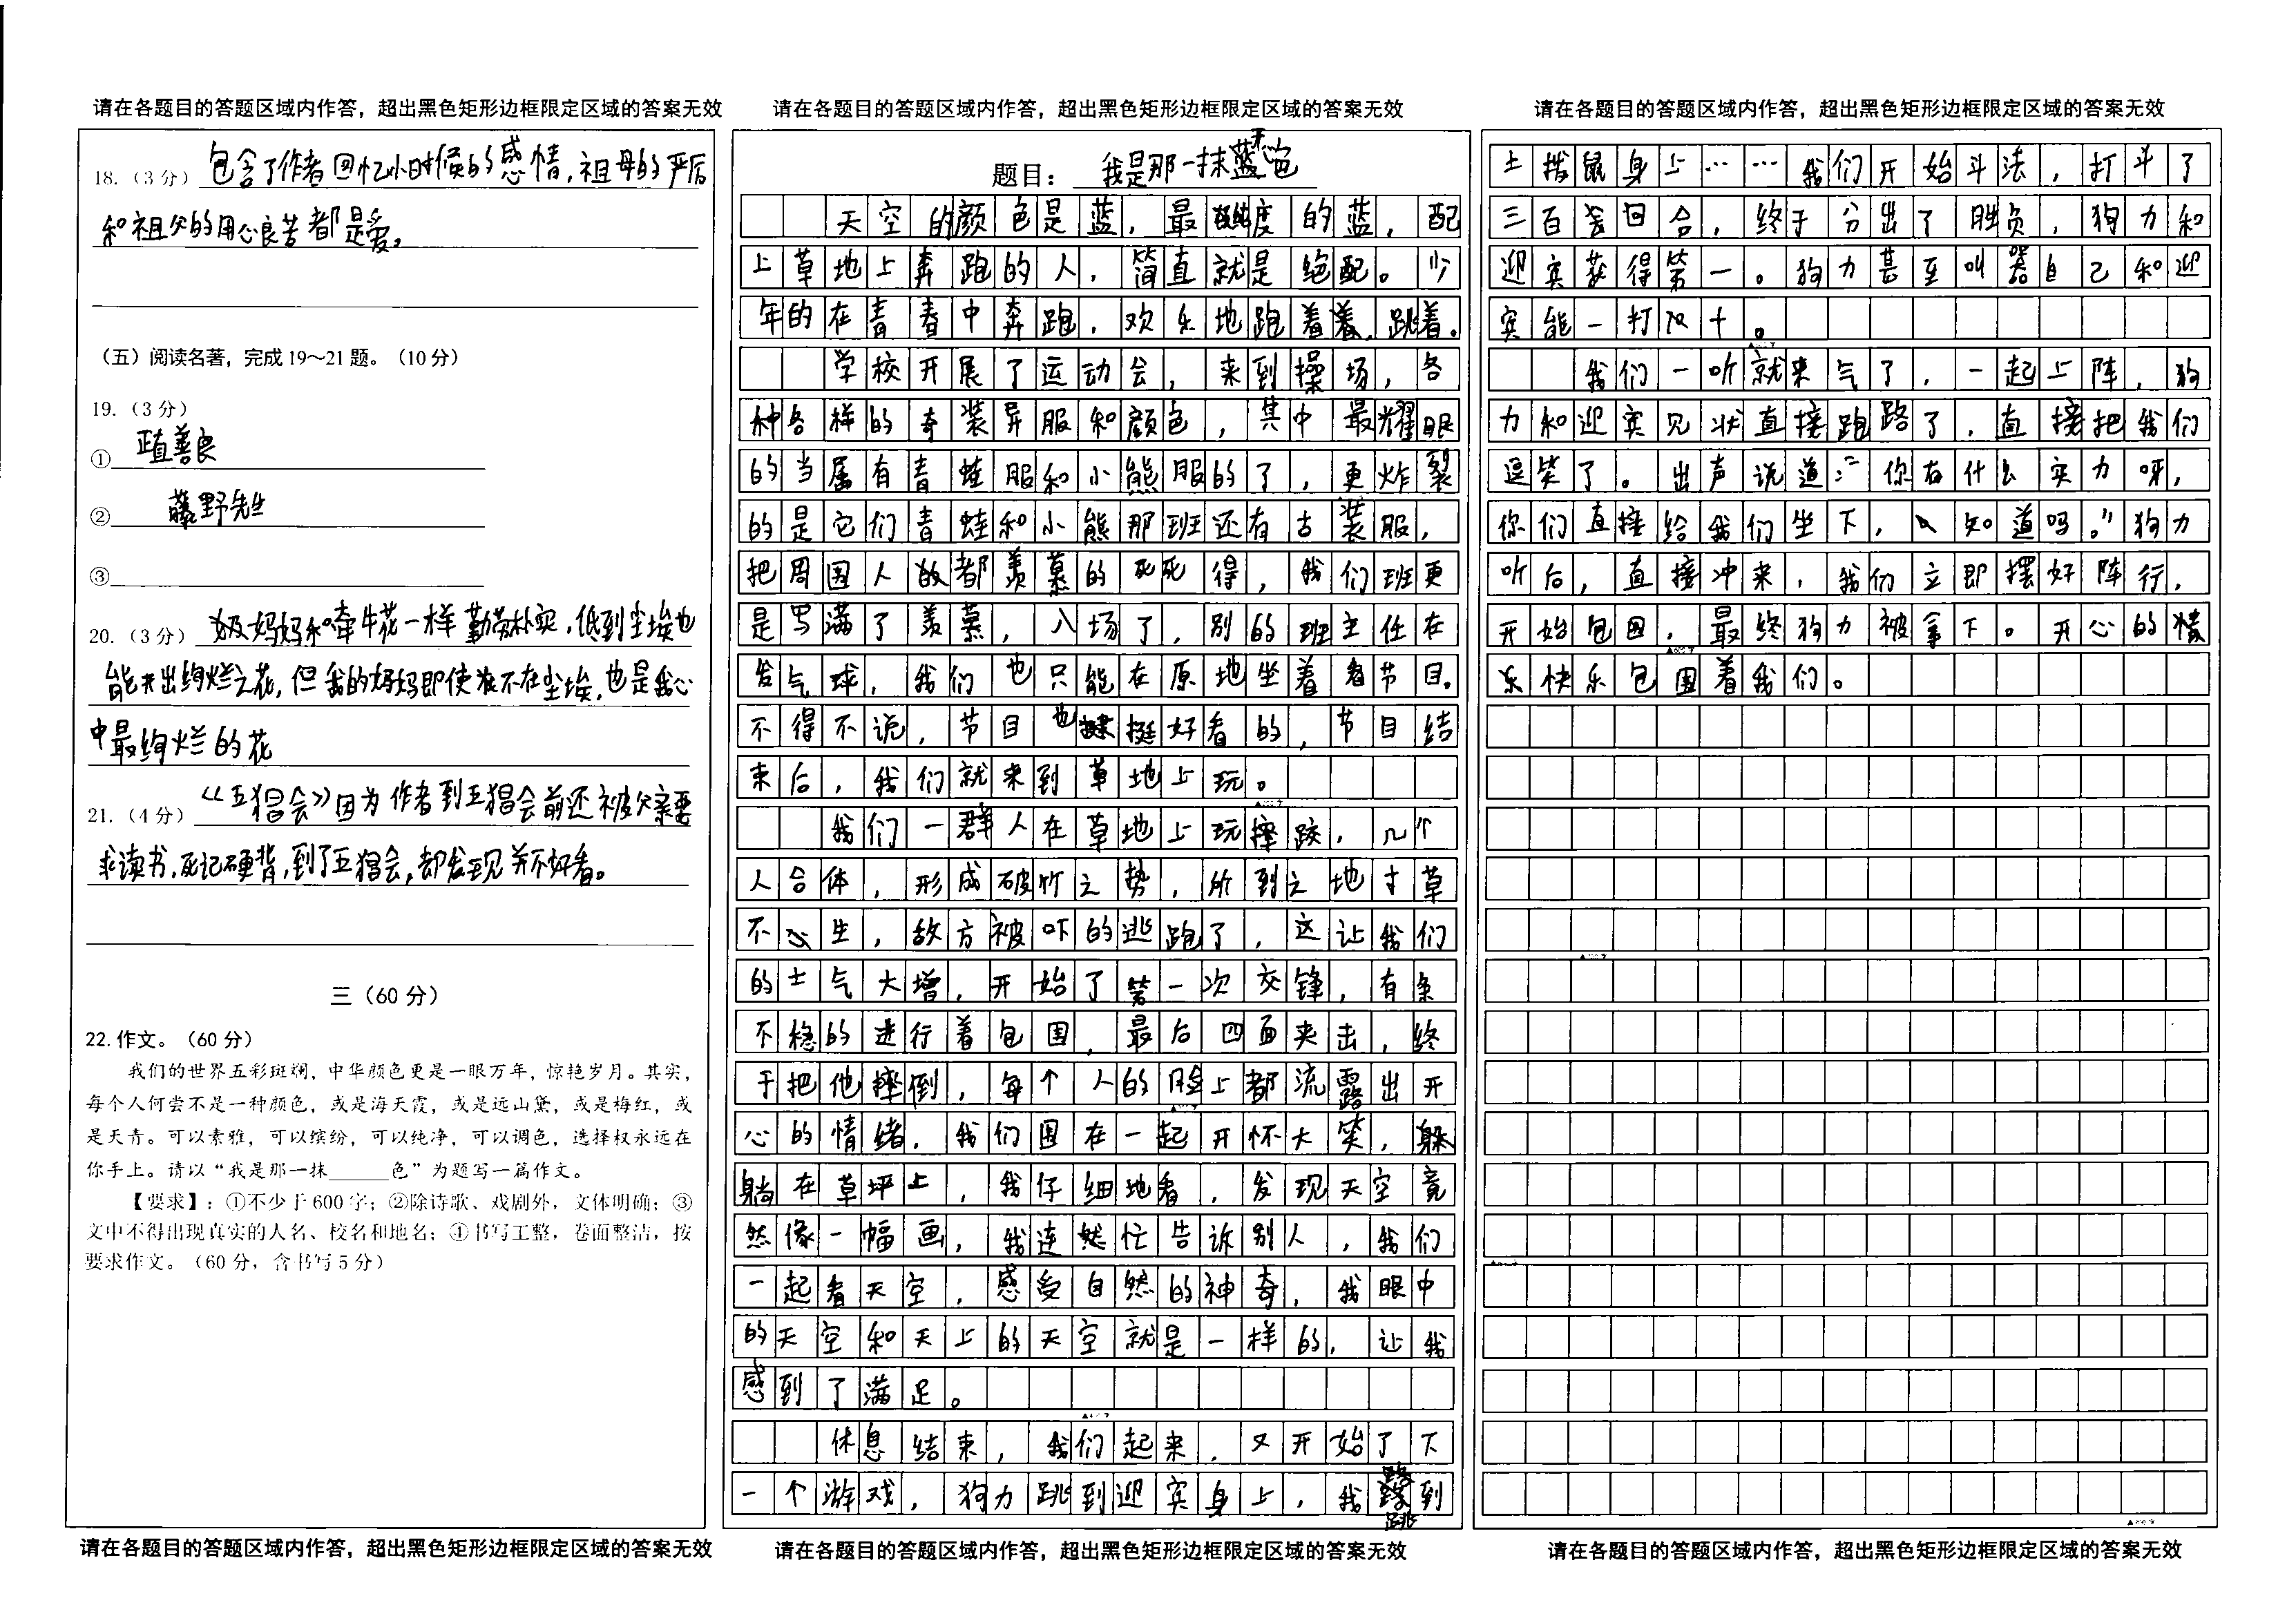 请在各题目的答题区域内作答，超出黑色矩形边框限定区域的答案无效
18.（3分）包含了作者回忆小时候的感情,祖母的严厉
和祖父的用心良苦都是爱。
（五）阅读名著，完成19～21题。（10分）
19.（3分）
①正直善良
②藤野先生
③
20.（3分）妈妈和牵牛花一样勤劳朴实,低到尘埃也
能开出绚烂之花,但我的妈妈即使不在尘埃,也是我心
中最绚烂的花
21.（4分）《五猖会》因为作者到五猖会前还被父亲要
求读书,死记硬背,到了五猖会,却发现并不好看。
三（60分）
22.作文。（60分）
我们的世界五彩斑斓，中华颜色更是一眼万年，惊艳岁月。其实，
每个人何尝不是一种颜色，或是海天霞，或是远山黛，或是梅红，或
是天青。可以素雅，可以缤纷，可以纯净，可以调色，选择权永远在
你手上。请以“我是那一抹______色”为题写一篇作文。
【要求】：①不少于600字；②除诗歌、戏剧外，文体明确；③
文中不得出现真实的人名、校名和地名；④书写工整，卷面整洁，按
要求作文。（60分，含书写5分）
请在各题目的答题区域内作答，超出黑色矩形边框限定区域的答案无效
请在各题目的答题区域内作答，超出黑色矩形边框限定区域的答案无效
题目：我是那一抹蓝色
天空的颜色是蓝，最纯度的蓝，配
上草地上奔跑的人，简直就是绝配。少
年的在青春中奔跑，欢乐地跑着，跳着。
学校开展了运动会，来到操场，各
种各样的奇装异服和颜色，其中最耀眼
的当属有青蛙服和小熊服的了，更炸裂
的是它们青蛙和小熊那班还有古装服，
把周围人都羡慕的死死得，我们班更
是写满了羡慕，入场了，别的班主任在
发气球，我们也只能在原地坐着看节目。
不得不说，节目也挺好看的，节目结
束后，我们就来到草地上玩。
我们一群人在草地上玩摔跤，几个
人合体，形成破竹之势，所到之地寸草
不生，敌方被吓的逃跑了，这让我们
的士气大增，开始了第一次交锋，有条
不稳的进行着包围，最后四面夹击，终
于把他摔倒，每个人的脸上都流露出开
心的情绪，我们围在一起开怀大笑，躲
躺在草坪上，我仔细地看，发现天空竟
然像一幅画，我连忙告诉别人，我们
一起看天空，感受自然的神奇，我眼中
的天空和天上的天空就是一样的，让我
感到了满足。
休息结束，我们起来，又开始了下
一个游戏，狗力跳到迎实身上，我跳到
请在各题目的答题区域内作答，超出黑色矩形边框限定区域的答案无效
请在各题目的答题区域内作答，超出黑色矩形边框限定区域的答案无效
土拨鼠身上……我们开始斗法，打斗了
三百回合，终于分出了胜负，狗力和
迎实获得第一。狗力甚至叫嚣自己和迎
实能一打八十。
我们一听就来气了，一起上阵，狗
力和迎实见状直接跑路了，直接把我们
逗笑了。出声说道：“你有什么实力呀，
你们直接给我们坐下，知道吗。”狗力
听后，直接冲来，我们立即摆好阵行，
开始包围，最终狗力被拿下。开心的
快乐包围着我们。
请在各题目的答题区域内作答，超出黑色矩形边框限定区域的答案无效